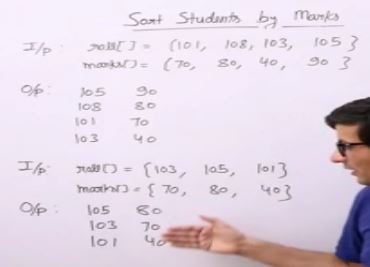 Sort Students by Marks
I/p: roll[] = {101, 108, 103, 105}
marks[] = {70, 80, 40, 90}
O/p: 105 90
108 80
101 70
103 40
I/p: roll[] = {103, 105, 101}
marks[] = {70, 80, 40}
O/p: 105 80
103 70
101 40